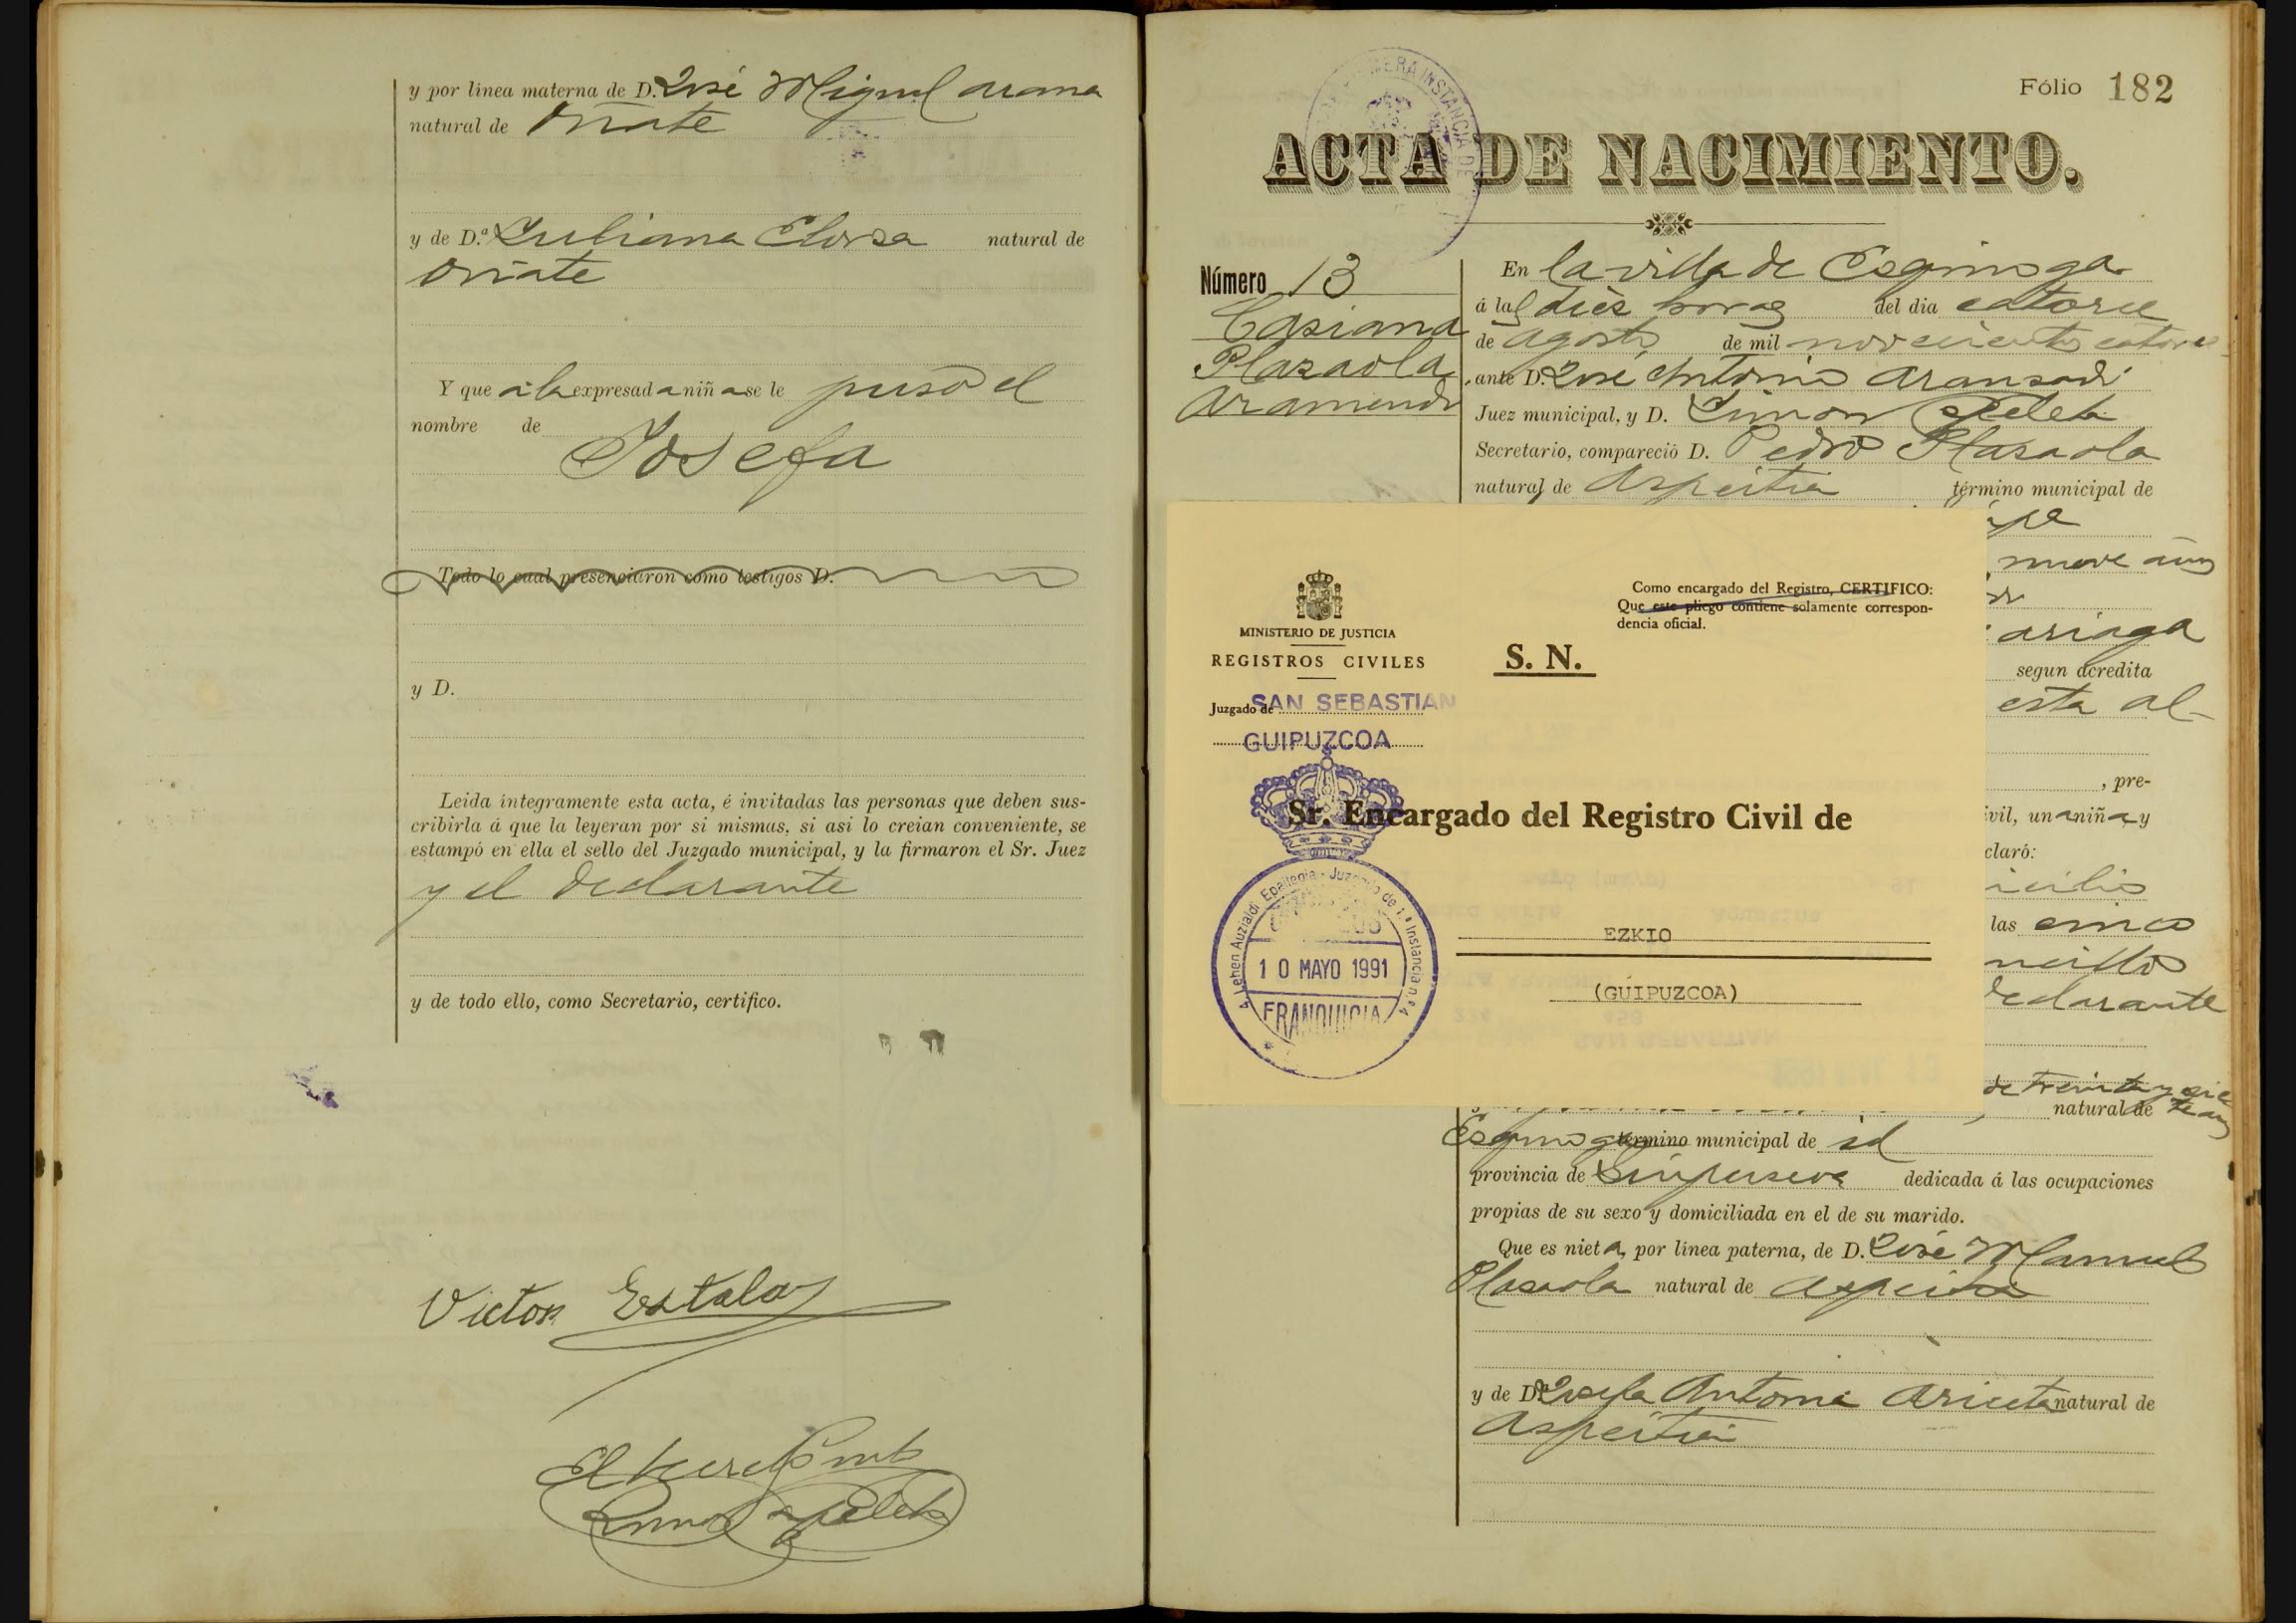 y por linea materna de D. José Miguel Arana
natural de Oñate
y de D.ª Juliana Elorza natural de
Oñate
Y que a la expresada niña se le puso el
nombre de
Josefa
Todo lo cual presenciaron como testigos D.
y D.
Leida íntegramente esta acta, é invitadas las personas que deben sus-
cribirla á que la leyeran por si mismas, si asi lo creian conveniente, se
estampó en ella el sello del Juzgado municipal, y la firmaron el Sr. Juez
y el declarante
y de todo ello, como Secretario, certifico.
Victor
El
Fólio 182
ACTA DE NACIMIENTO.
Número 13
Casiana
Plazaola
Aramendi
En la villa de Esquioga
á las diez horas del dia catorce
de Agosto de mil novecientos catorce
ante D. José Antonio Aransadi
Juez municipal, y D. Simon
Secretario, compareció D. Pedro Plazaola
natural de Azpeitia término municipal de
nueve años
segun acredita
esta al-
, pre-
ivil, una niña y
claró:
icilio
las cinco
declarante
de treinta y siete años
natural de
Esquioga término municipal de id
provincia de Guipuzcoa dedicada á las ocupaciones
propias de su sexo y domiciliada en el de su marido.
Que es nieta, por línea paterna, de D. José Manuel
Plazaola natural de Azpeitia
y de D.ª Josefa Antonia Arieta natural de
Azpeitia
MINISTERIO DE JUSTICIA
REGISTROS CIVILES
Juzgado de SAN SEBASTIAN
GUIPUZCOA
S. N.
Como encargado del Registro, CERTIFICO:
Que este pliego contiene solamente correspon-
dencia oficial.
Sr. Encargado del Registro Civil de
EZKIO
(GUIPUZCOA)
4. Lehen Auzialdi Epaitegia - Juzgado de 1.ª Instancia n.º 4
10 MAYO 1991
FRANQUICIA